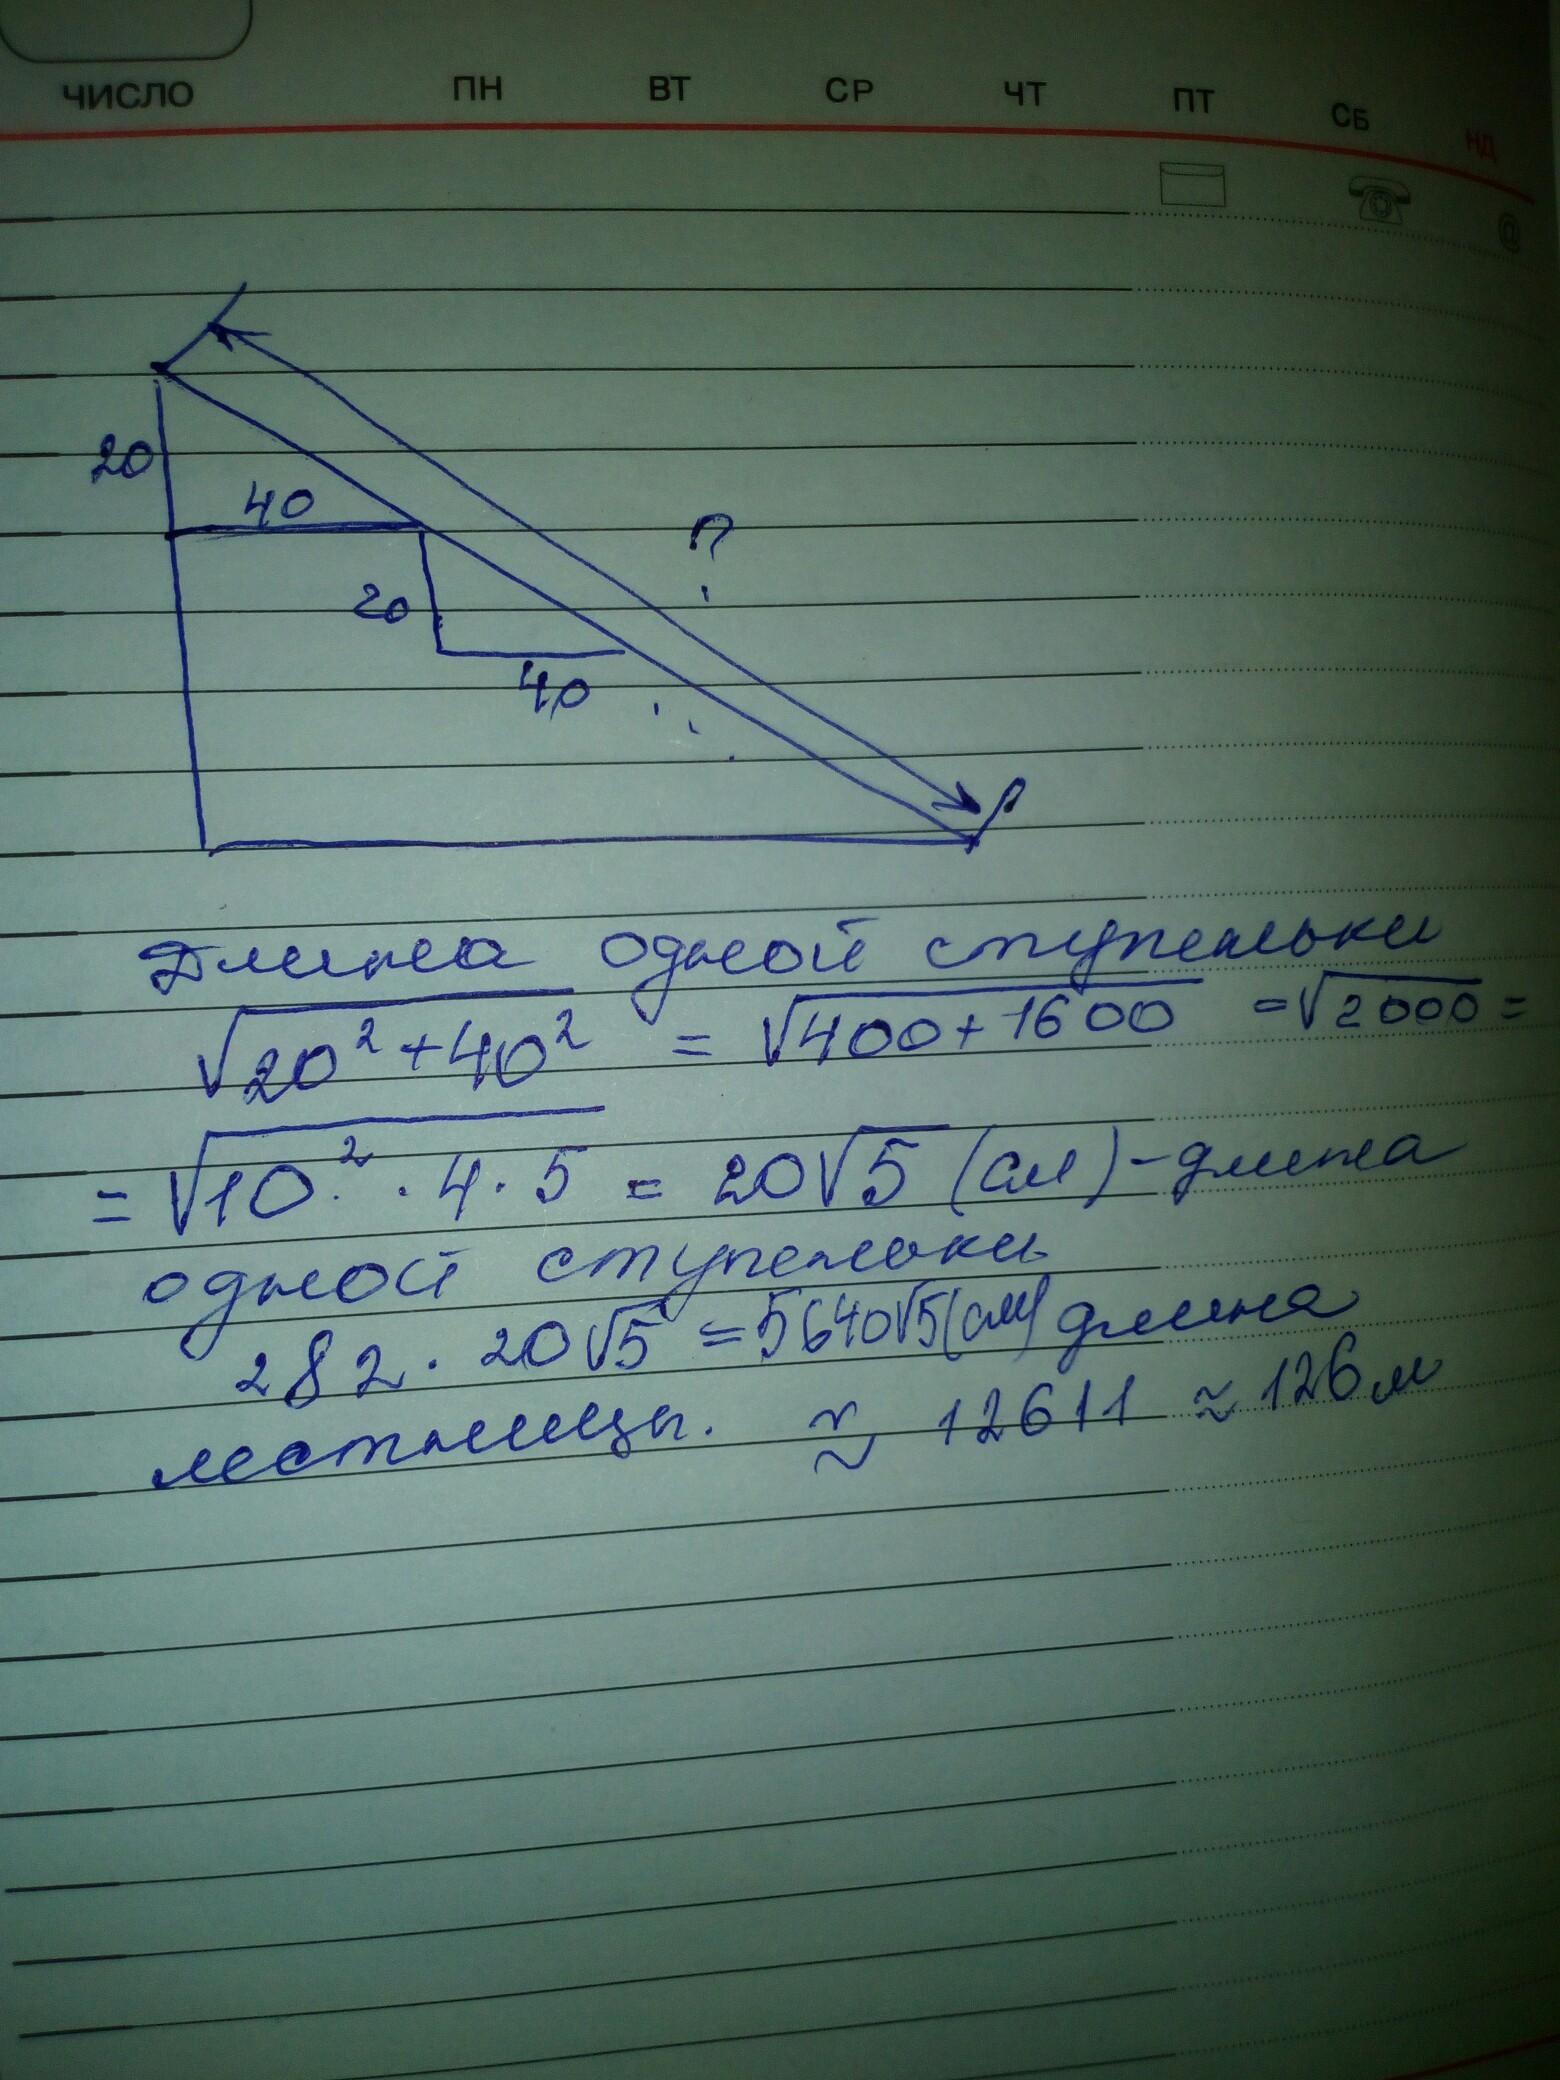 ЧИСЛО ПН ВТ СР ЧТ ПТ СБ НД
@
20
40
?
20
40
Длина одной ступеньки
√20² + 40² = √400 + 1600 = √2000 =
= √10² · 4 · 5 = 20√5 (см) - длина
одной ступеньки
282 · 20√5 = 5640√5 (см) длина
лестницы. ≈ 12611 ≈ 126 м